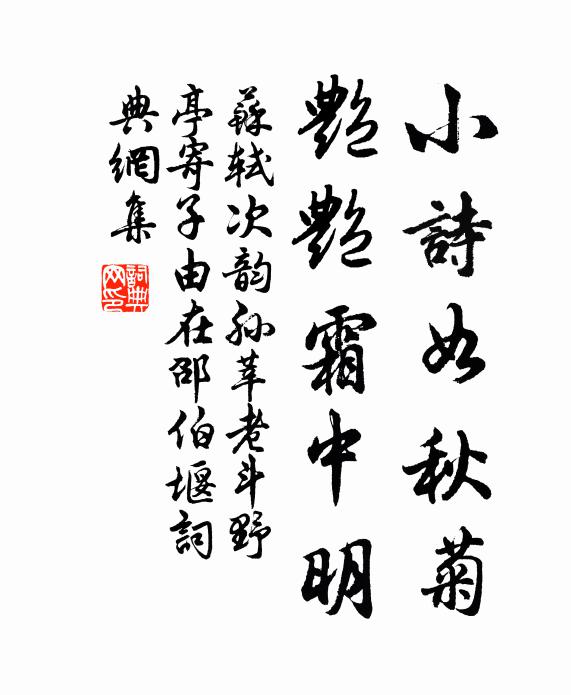 小詩如秋菊
艷艷霜中明
蘇軾次韵孫莘老斗野
亭寄子由在邵伯堰詞
典網集
詞典
网印